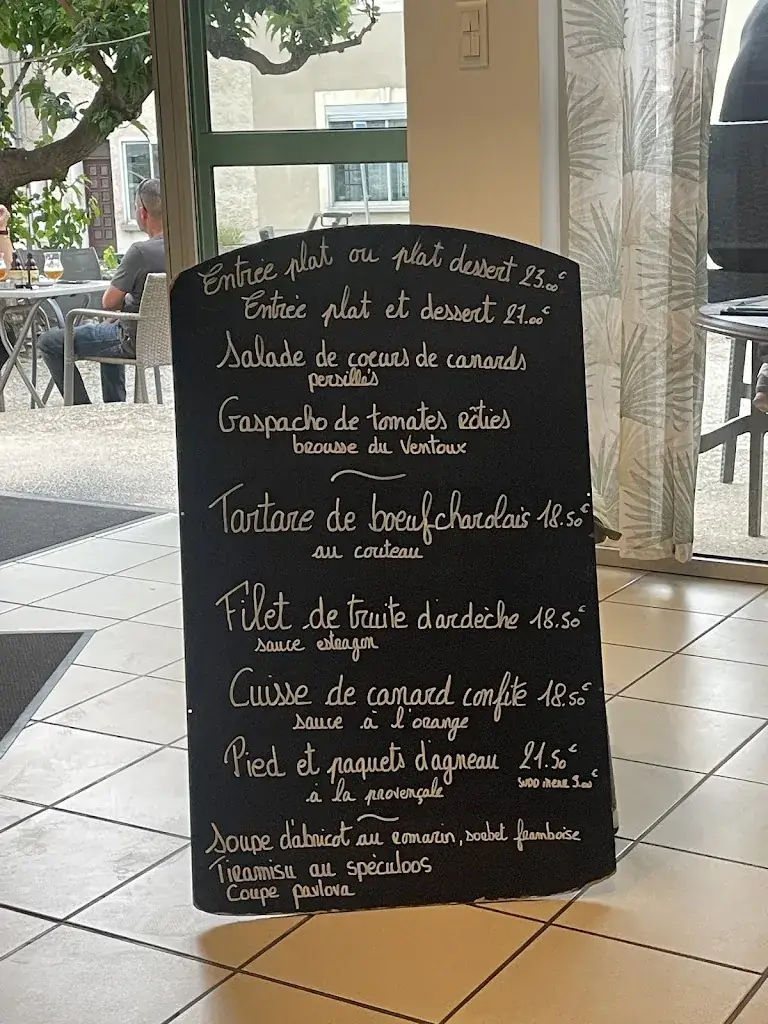 Entrée plat ou plat dessert 23.00€
Entrée plat et dessert 27.00€
Salade de coeurs de canards
persillés
Gaspacho de tomates rôties
brousse du Ventoux
Tartare de boeuf charolais 18.50€
au couteau
Filet de truite d'ardèche 18.50€
sauce estragon
Cuisse de canard confite 18.50€
sauce à l'orange
Pied et paquets d'agneau 21.50€
à la provençale
supp menu 3.00€
Soupe d'abricot au romarin, sorbet framboise
Tiramisu au spéculoos
Coupe pavlova